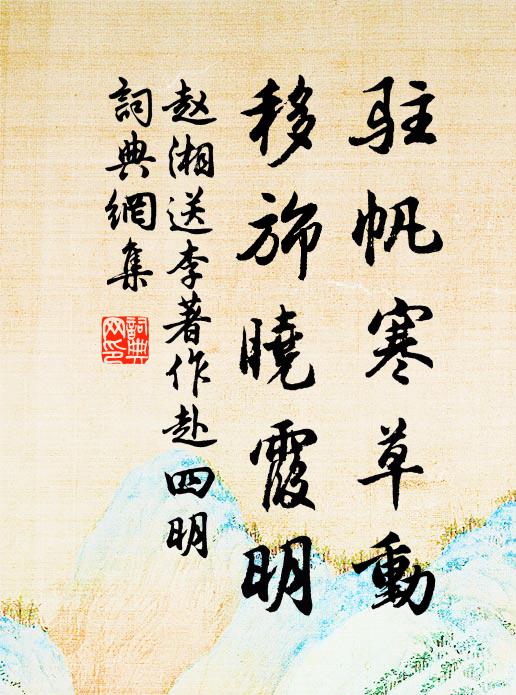 驻帆寒草動
移旆曉霞明
赵湘送李著作赴四明
詞典網集
詞典
网印